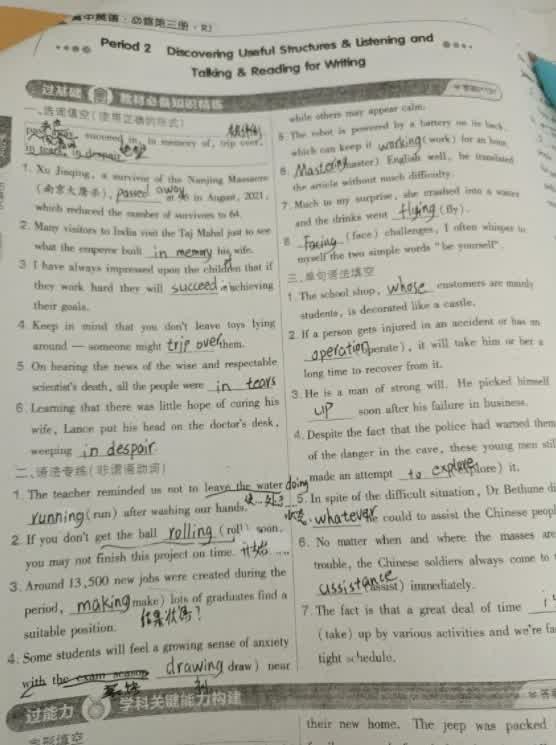 高中英语·必修第三册·RJ
Period 2 Discovering Useful Structures & Listening and
Talking & Reading for Writing
过基础 教材必备知识精练
一、选词填空(使用正确的形式)
succeed in, in memory of, trip over,
in tears, in despair
1. Xu Jinqing, a survivor of the Nanjing Massacre
(南京大屠杀), passed away at in August, 2021,
which reduced the number of survivors to 64.
2. Many visitors to India visit the Taj Mahal just to see
what the emperor built in memory his wife.
3 I have always impressed upon the children that if
they work hard they will succeed in achieving
their goals.
4. Keep in mind that you don't leave toys lying
around — someone might trip over them.
5 On hearing the news of the wise and respectable
scientist's death, all the people were in tears
6. Learning that there was little hope of curing his
wife, Lance put his head on the doctor's desk,
weeping in despair.
二、语法专练(非谓语动词)
1. The teacher reminded us not to leave the water doing
running (run) after washing our hands.
2 If you don't get the ball rolling (roll) soon,
you may not finish this project on time. 开始
3. Around 13,500 new jobs were created during the
period, making make) lots of graduates find a
suitable position. 结果状语?
4. Some students will feel a growing sense of anxiety
with the exam season drawing draw) near
过能力 学科关键能力构建
完形填空
while others may appear calm.
5. The robot is powered by a battery on its back,
which can keep it working (work) for an hour.
6. Mastering master) English well, he translated
the article without much difficulty.
7. Much to my surprise, she crashed into a waiter
and the drinks went flying (fly).
8. Facing (face) challenges, I often whisper to
myself the two simple words "be yourself".
三、单句语法填空
1. The school shop, whose customers are mainly
students, is decorated like a castle.
2. If a person gets injured in an accident or has an
operation operate), it will take him or her a
long time to recover from it.
3. He is a man of strong will. He picked himself
up soon after his failure in business.
4. Despite the fact that the police had warned them
of the danger in the cave, these young men still
made an attempt to explore plore) it.
5. In spite of the difficult situation, Dr Bethune di
whatever he could to assist the Chinese peopl
6. No matter when and where the masses are
trouble, the Chinese soldiers always come to
assistance (assist) immediately.
7. The fact is that a great deal of time
(take) up by various activities and we're fa
tight schedule.
their new home. The jeep was packed